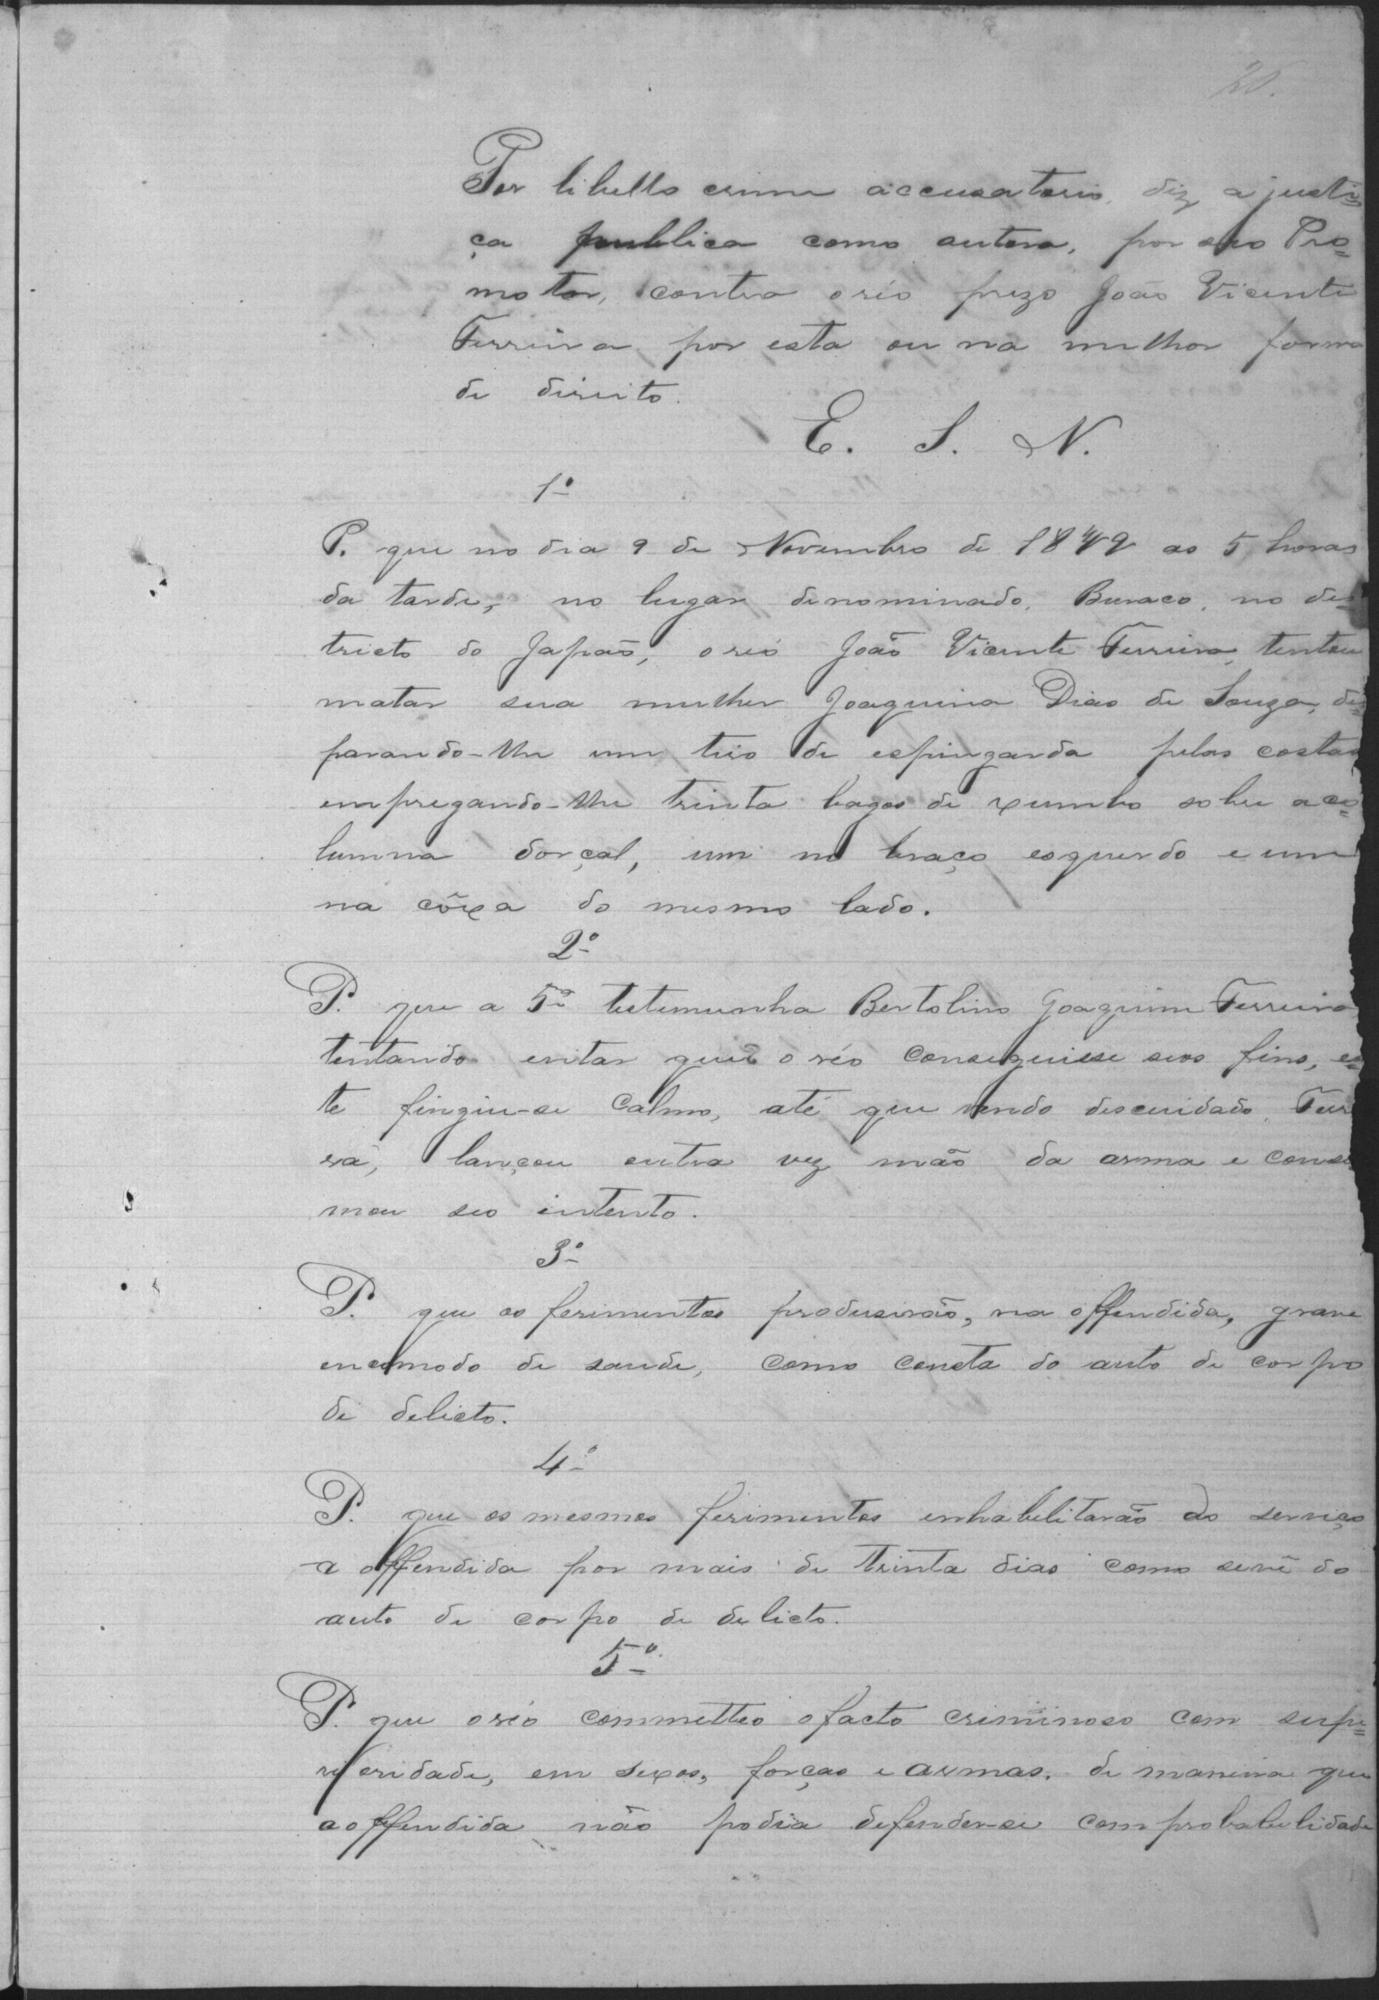 Por libello crime accusatorio, diz a justi=
ça publica como autora, por seo Pro=
motor, contra o réo prezo João Vicente
Ferreira por esta ou na milhor forma
de direito.
E. S. N.
1º
P. que no dia 9 de Novembro de as 5 horas
da tarde, no lugar denominado, Buraco, no des=
tricto do Japão, o réo João Vicente Ferreira, tentou
matar sua mulher Joaquina Dias de Souza, dis=
parando-lhe um tiro de espingarda pelas costas
empregando-lhe trinta bagos de xumbo sobre a co=
lumna dorçal, um no braço esquerdo e um
na côxa do mesmo lado.
2º
P. que a 5ª testemunha Bertolino Joaquim Ferreira
tentando evitar que o réo conseguisse seos fins, es=
te fingiu-se calmo, até que vendo descuidado, Ferr
ra, lançou outra vez mão da arma e consu
mou seo intento.
3º
P. que os ferimentos produsirão, na offendida, grave
encomodo de saude, como consta do auto de corpo
de delicto.
4º
P. que os mesmos ferimentos enhabilitarão do serviço
a offendida por mais de trinta dias como se vê do
auto de corpo de delicto.
5º
P. que o réo commetteo o facto criminoso com supe=
rioridade, em sexos, forças e armas, de maneira que
a offendida não podia defender-se com probabilidade